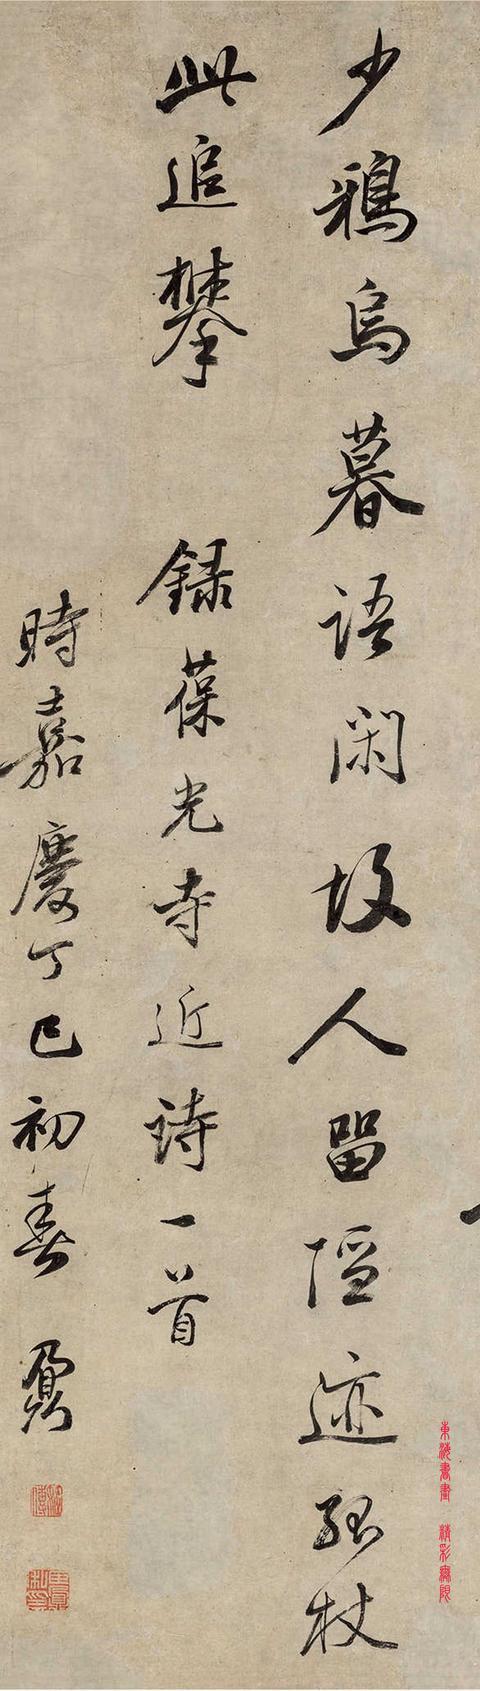 少鴉烏暮語閑故人留隱迹孤杖
此追攀 錄葆光寺近詩一首
時嘉慶丁巳初春 鼐
東海書畫 精彩無限